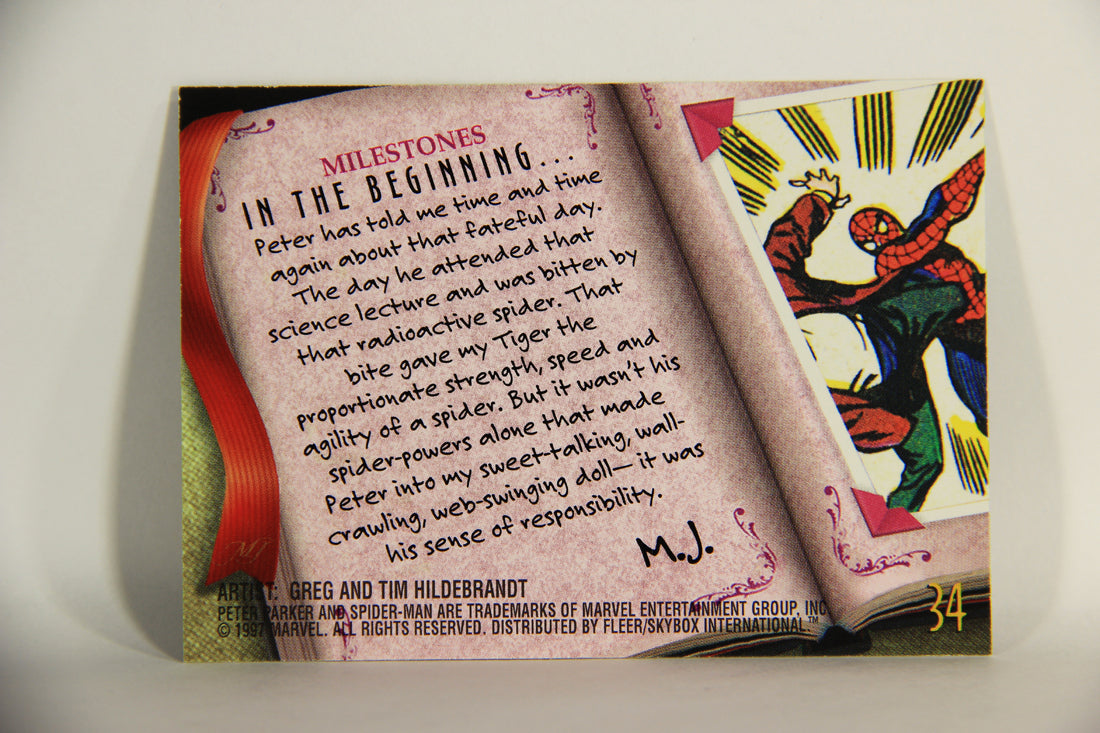 MILESTONES
IN THE BEGINNING...
Peter has told me time and time
again about that fateful day.
The day he attended that
science lecture and was bitten by
that radioactive spider. That
bite gave my Tiger the
proportionate strength, speed and
agility of a spider. But it wasn't his
spider-powers alone that made
Peter into my sweet-talking, wall-
crawling, web-swinging doll— it was
his sense of responsibility.
M.J.
MJ
ARTIST: GREG AND TIM HILDEBRANDT
PETER PARKER AND SPIDER-MAN ARE TRADEMARKS OF MARVEL ENTERTAINMENT GROUP, INC
© 1997 MARVEL. ALL RIGHTS RESERVED. DISTRIBUTED BY FLEER/SKYBOX INTERNATIONAL™
34